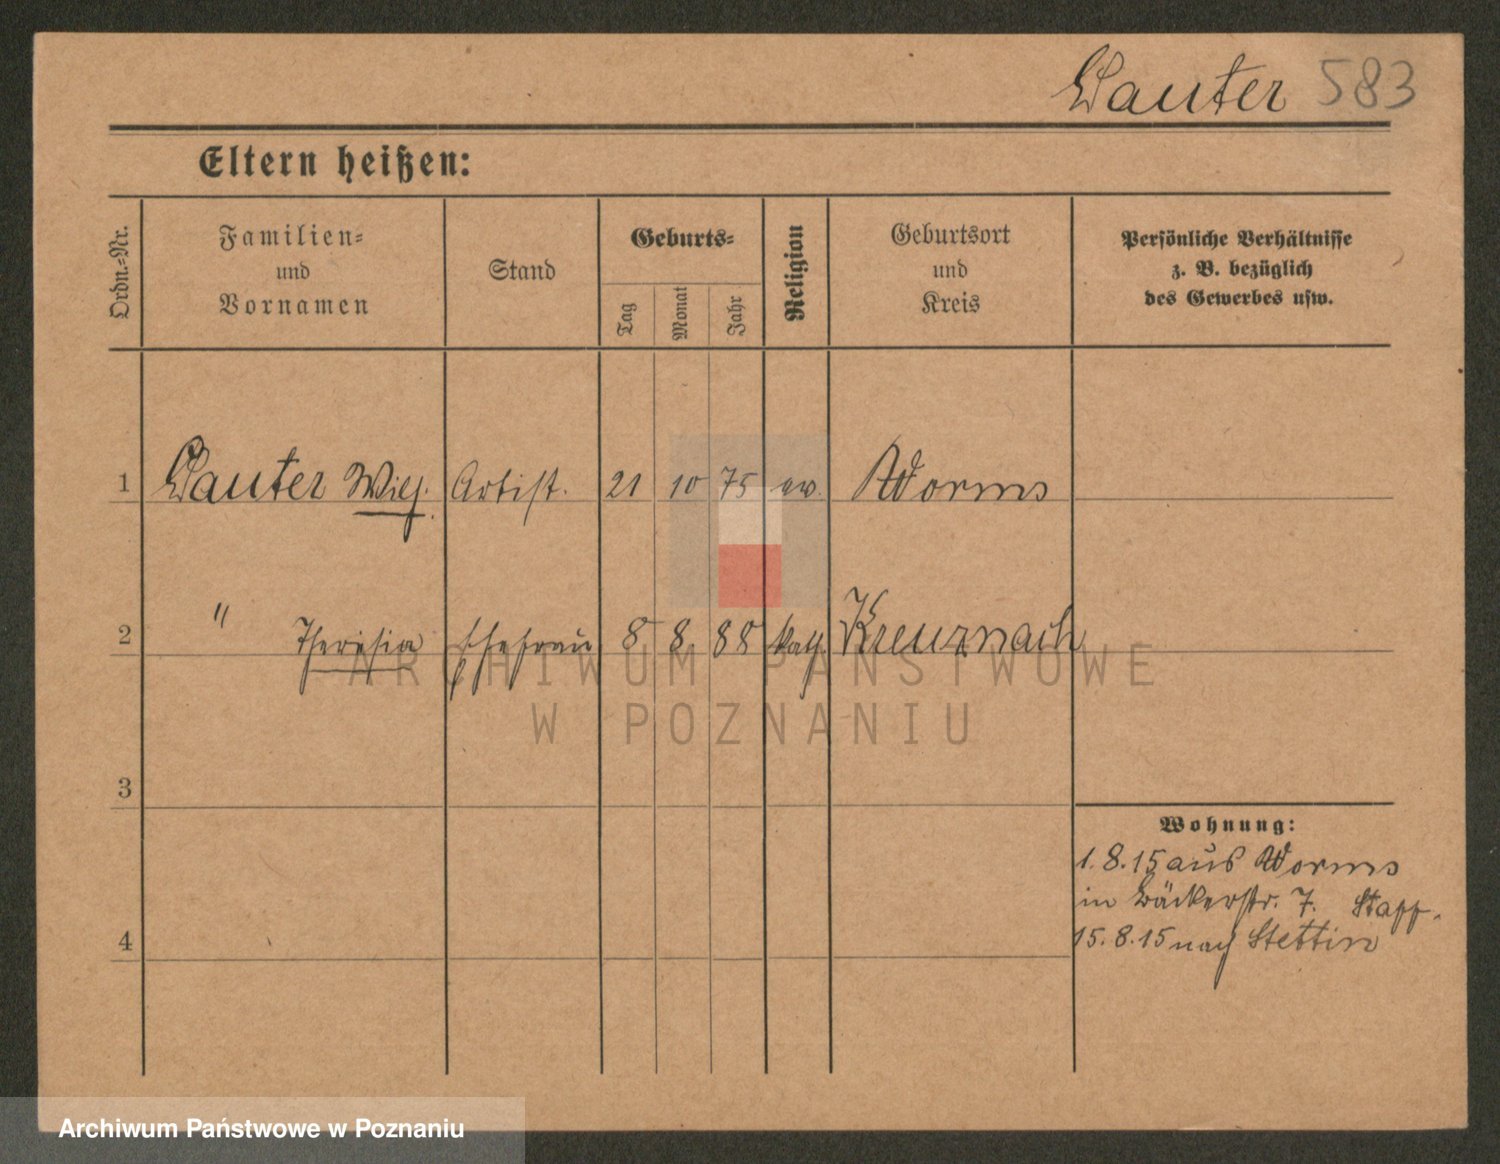 Lauter 583
Eltern heißen:
Ordn.-Nr.
Familien-
und
Vornamen
Stand
Geburts-
Tag
Monat
Jahr
Religion
Geburtsort
und
Kreis
Persönliche Verhältnisse
z. B. bezüglich
des Gewerbes usw.
1 Lauter Wilh. Artist. 21 10 75 ev. Worms
2 " Theresia Ehefrau 8 8. 88 kath. Kreuznach
3
4
Wohnung:
1.8.15 aus Worms
in Bäckerstr. 7.
15.8.15 nach Stettin
ARCHIWUM PAŃSTWOWE
W POZNANIU
Archiwum Państwowe w Poznaniu